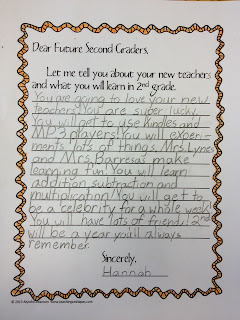 Dear Future Second Graders,
Let me tell you about your new teachers
and what you will learn in 2nd grade.
You are going to love your new
teachers! You are super lucky.
You will get to use kindles and
MP3 players! You will experi-
ments lots of things. Mrs. Lynes
and Mrs. Barresas make
learning fun! You will learn
addition subtraction and
multiplication! You will get to
be a celebrity for a whole week!
You will have lots of friends! 2nd
will be a year you'll always
remember.
Sincerely,
Hannah